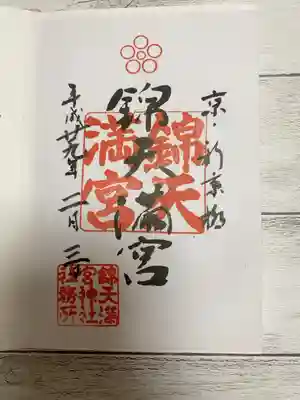 京・新京極
錦天満宮
錦天
満宮
平成廿九年二月三日
錦天満
宮神社
社務所